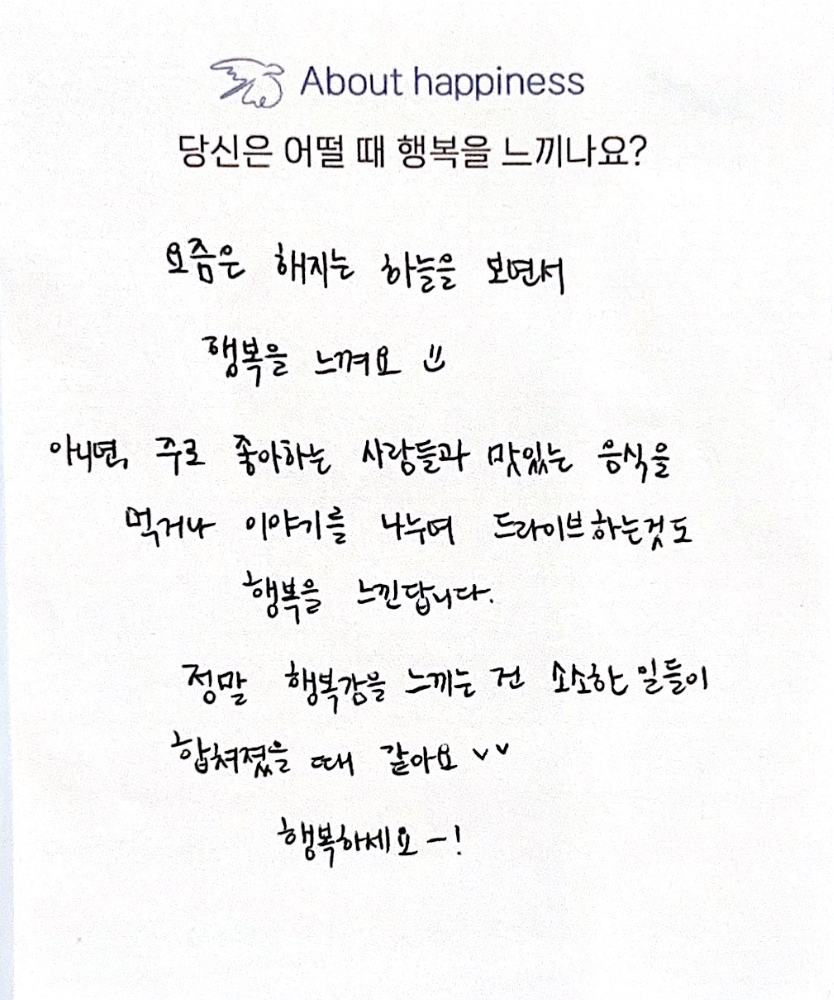 About happiness
당신은 어떨 때 행복을 느끼나요?
요즘은 해지는 하늘을 보면서
행복을 느껴요
아니면, 주로 좋아하는 사람들과 맛있는 음식을
먹거나 이야기를 나누며 드라이브하는것도
행복을 느낀답니다.
정말 행복감을 느끼는 건 소소한 일들이
합쳐졌을 때 같아요 ᵛᵛ
행복하세요 –!